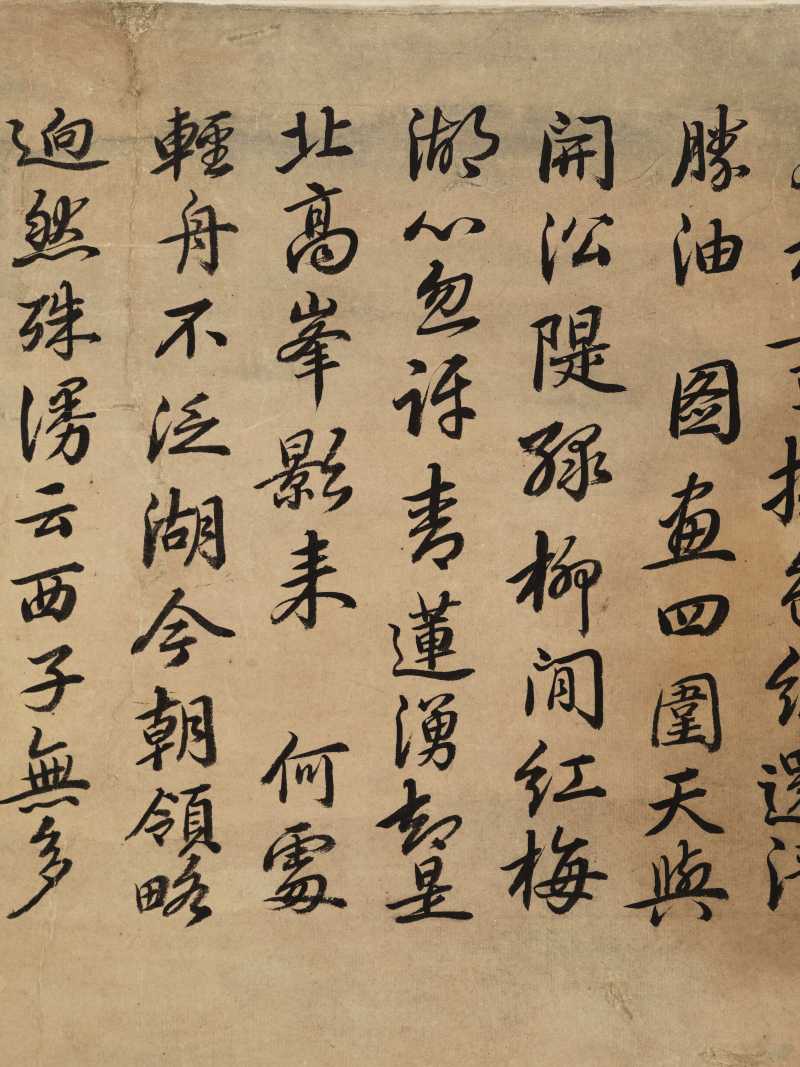 勝油 圖畫四圍天與
開沿隄綠柳間紅梅
湖心忽訝青蓮湧却是
北高峯影来 何處
輕舟不泛湖今朝領略
逈然殊漫云西子無多